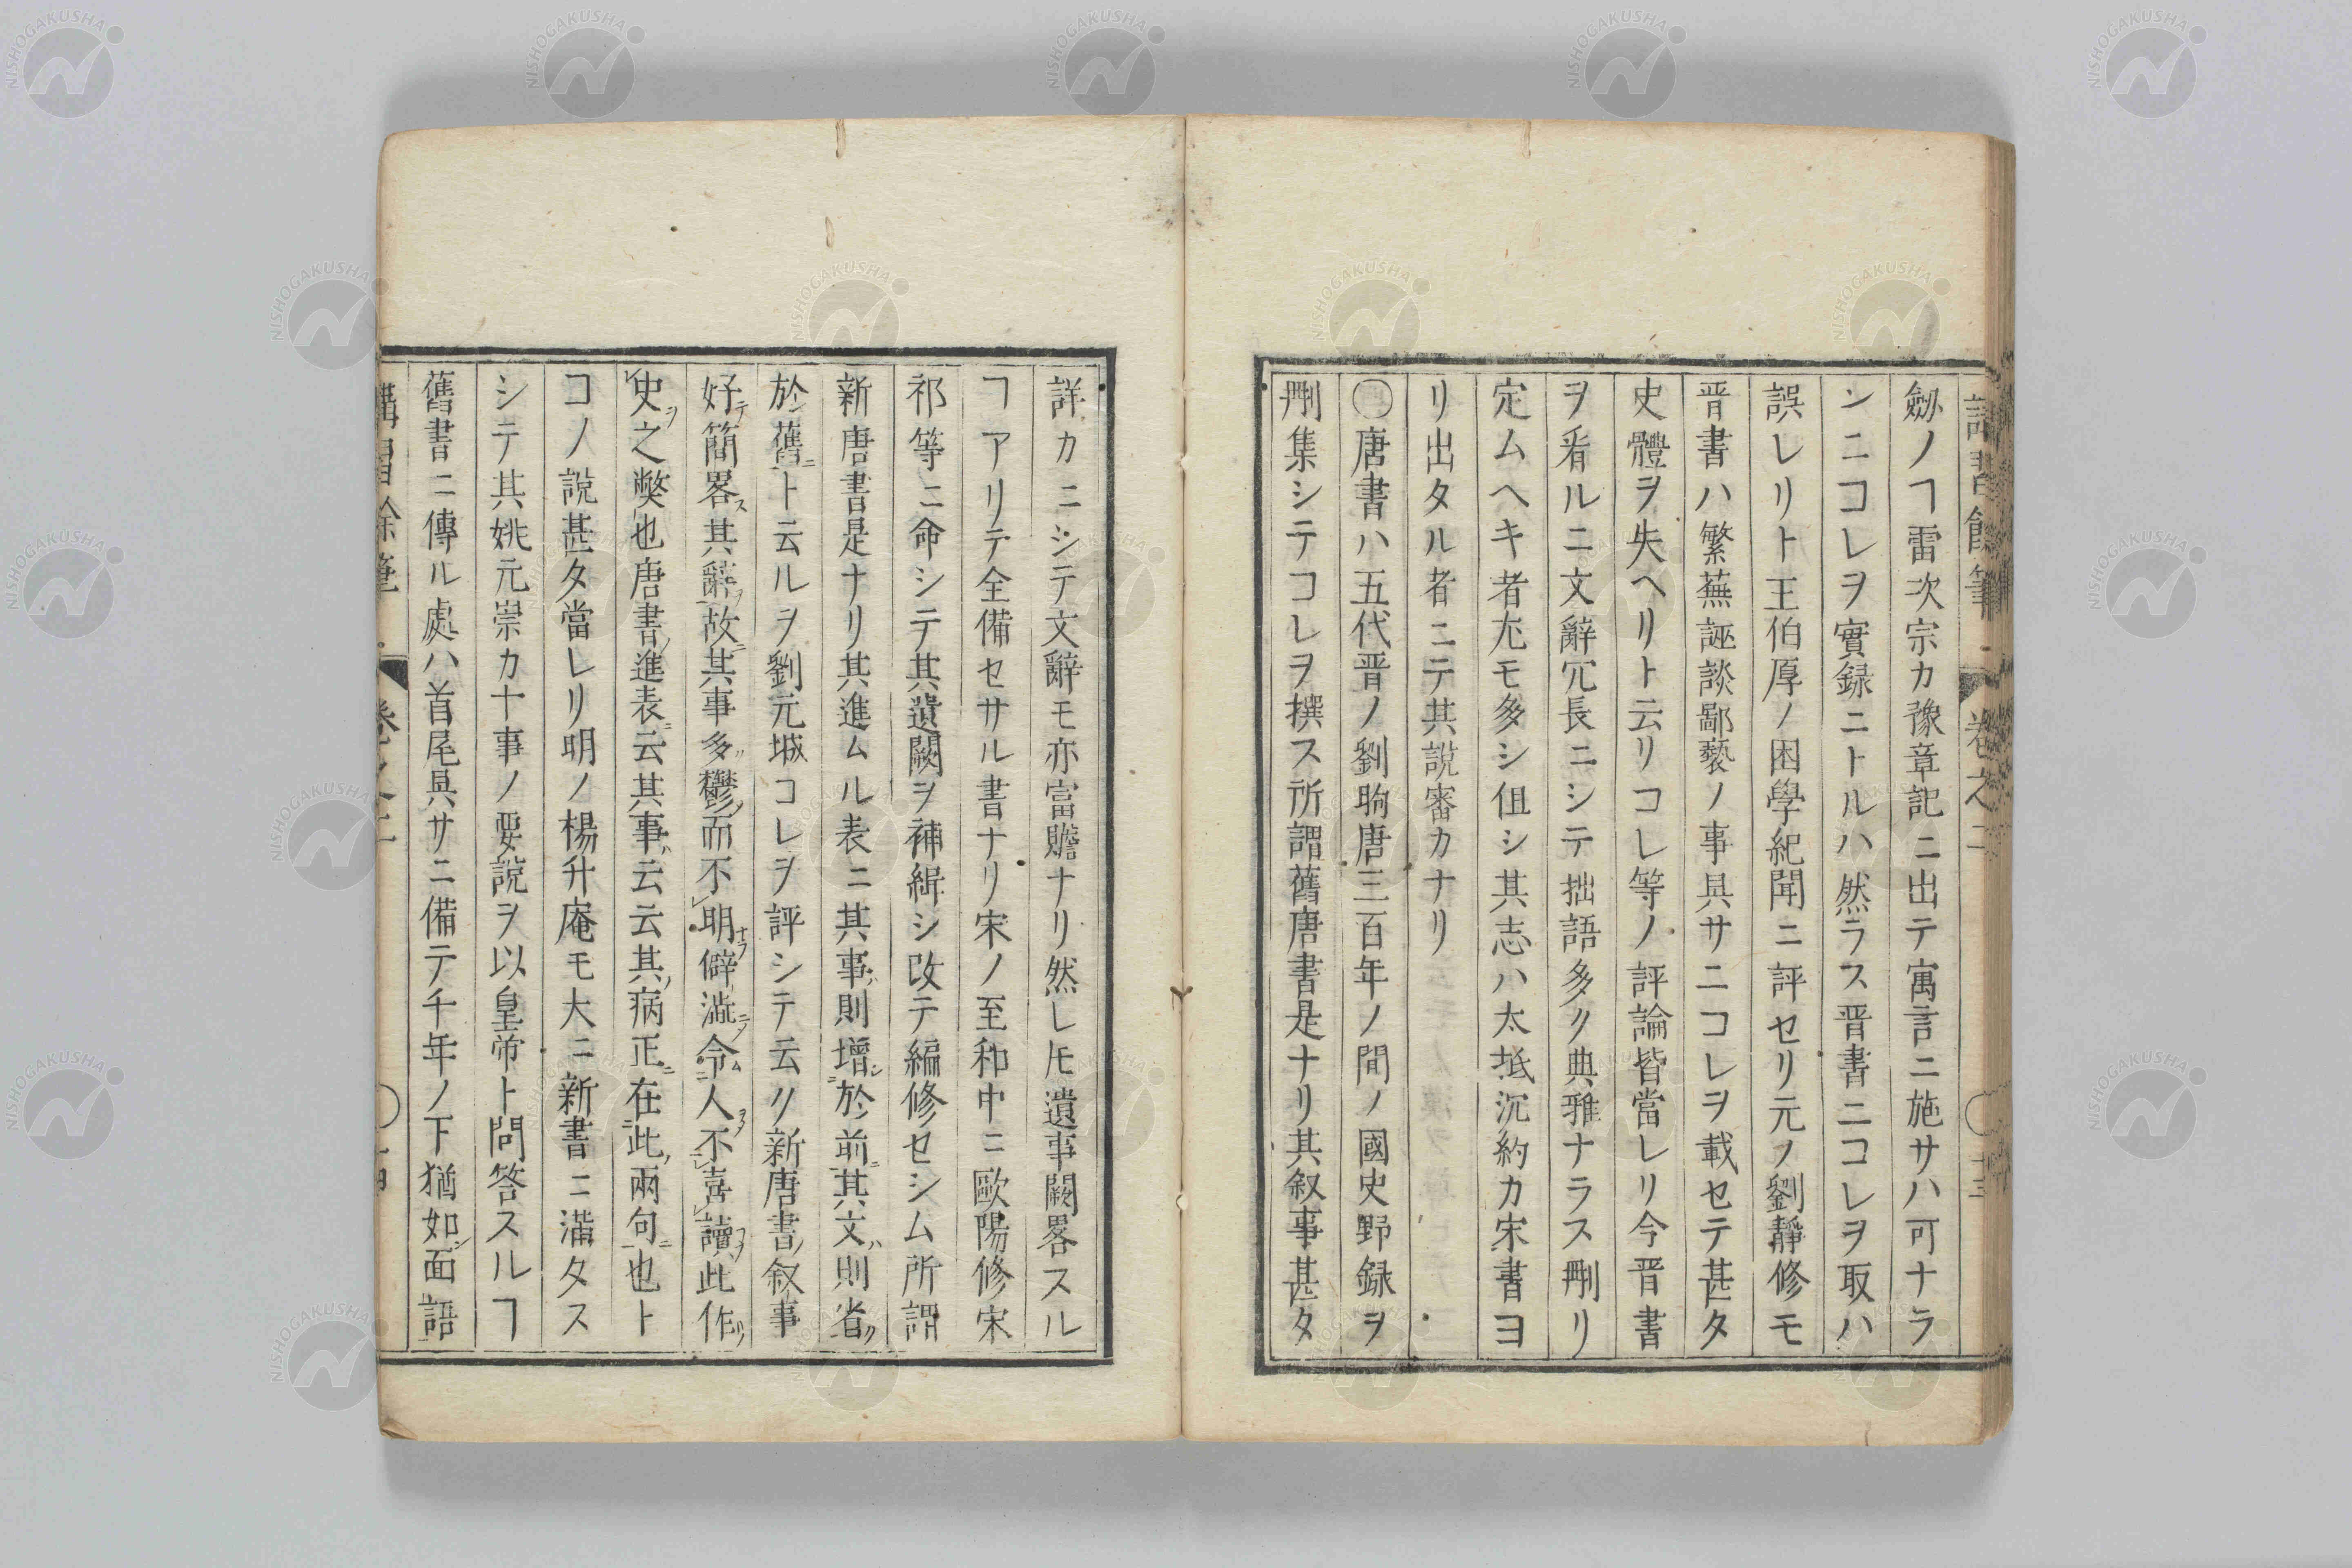 劔ノヿ雷次宗カ豫章記ニ出テ寓言ニ施サハ可ナラ
ンニコレヲ實録ニトルハ然ラス晋書ニコレヲ取ハ
誤レリト王伯厚ノ困學紀聞ニ評セリ元ノ劉靜修モ
晋書ハ繁蕪誣談鄙褻ノ事具サニコレヲ載セテ甚タ
史體ヲ失ヘリト云リコレ等ノ評論皆當レリ今晋書
ヲ看ルニ文辭冗長ニシテ拙語多ク典雅ナラス刪リ
定ムヘキ者尤モ多シ伹シ其志ハ太坻沉約カ宋書ヨ
リ出タル者ニテ其説審カナリ
〇唐書ハ五代晋ノ劉昫唐三百年ノ間ノ國史野録ヲ
刪集シテコレヲ撰ス所謂舊唐書是ナリ其叙事甚タ
卷之二
詳カニシテ文辭モ亦富贍ナリ然レ𪜈遺事闕畧スル
ヿアリテ全備セサル書ナリ宋ノ至和中ニ歐陽修宋
祁等ニ命シテ其遺闕ヲ補緝シ改テ編修セシム所謂
新唐書是ナリ其進ムル表ニ其事則增於前其文則省
於舊ト云ルヲ劉元城コレヲ評シテ云ク新唐書叙事
好簡畧其辭故其事多鬱而不明僻澁令人不喜讀此作
史之獘也唐書進表云其事云云其病正在此兩句也ト
コノ說甚タ當レリ明ノ楊升庵モ大ニ新書ニ滿タス
シテ其姚元崇カ十事ノ要說ヲ以皇帝ト問答スルヿ
舊書ニ傳ル處ハ首尾具サニ備テ千年ノ下猶如面語
NISHOGAKUSHA